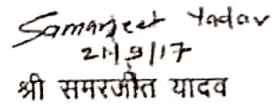 Samarjeet Yadav
21/9/17
श्री समरजीत यादव